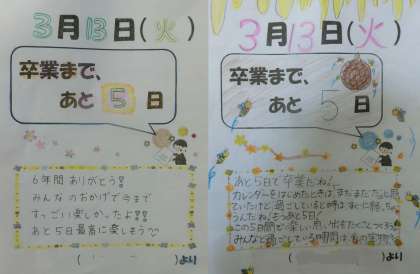 3月13日(火)
卒業まで、
あと5日
6年間 ありがとう!!
みんなのおかげで今まで
すっごい楽しかったよ!!!
あと5日最高に楽しもう♡
より
3月13日(火)
卒業まで、
あと5日
あと5日で卒業だね!
カレンダーをはじめたときは、まだまだだと思っ
ていたけど、過ごしていると時はすぐに経っちゃ
うんだね。もうあと5日!
この5日間で楽しい思い出をたくさんつくろう。
みんなと過ごしている時間は私の宝物!
より